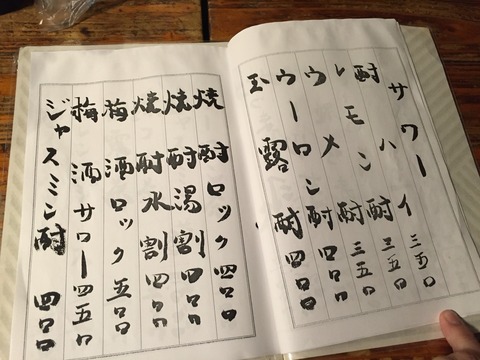 サワー
酎ハイ 三五〇
レモン酎 三五〇
ウメ酎 三五〇
ウーロン酎 四〇〇
玉露酎 四〇〇
焼酎ロック 四〇〇
焼酎湯割 四〇〇
焼酎水割 四〇〇
梅酒ロック 五〇〇
梅酒サワー 四五〇
ジャスミン酎 四〇〇